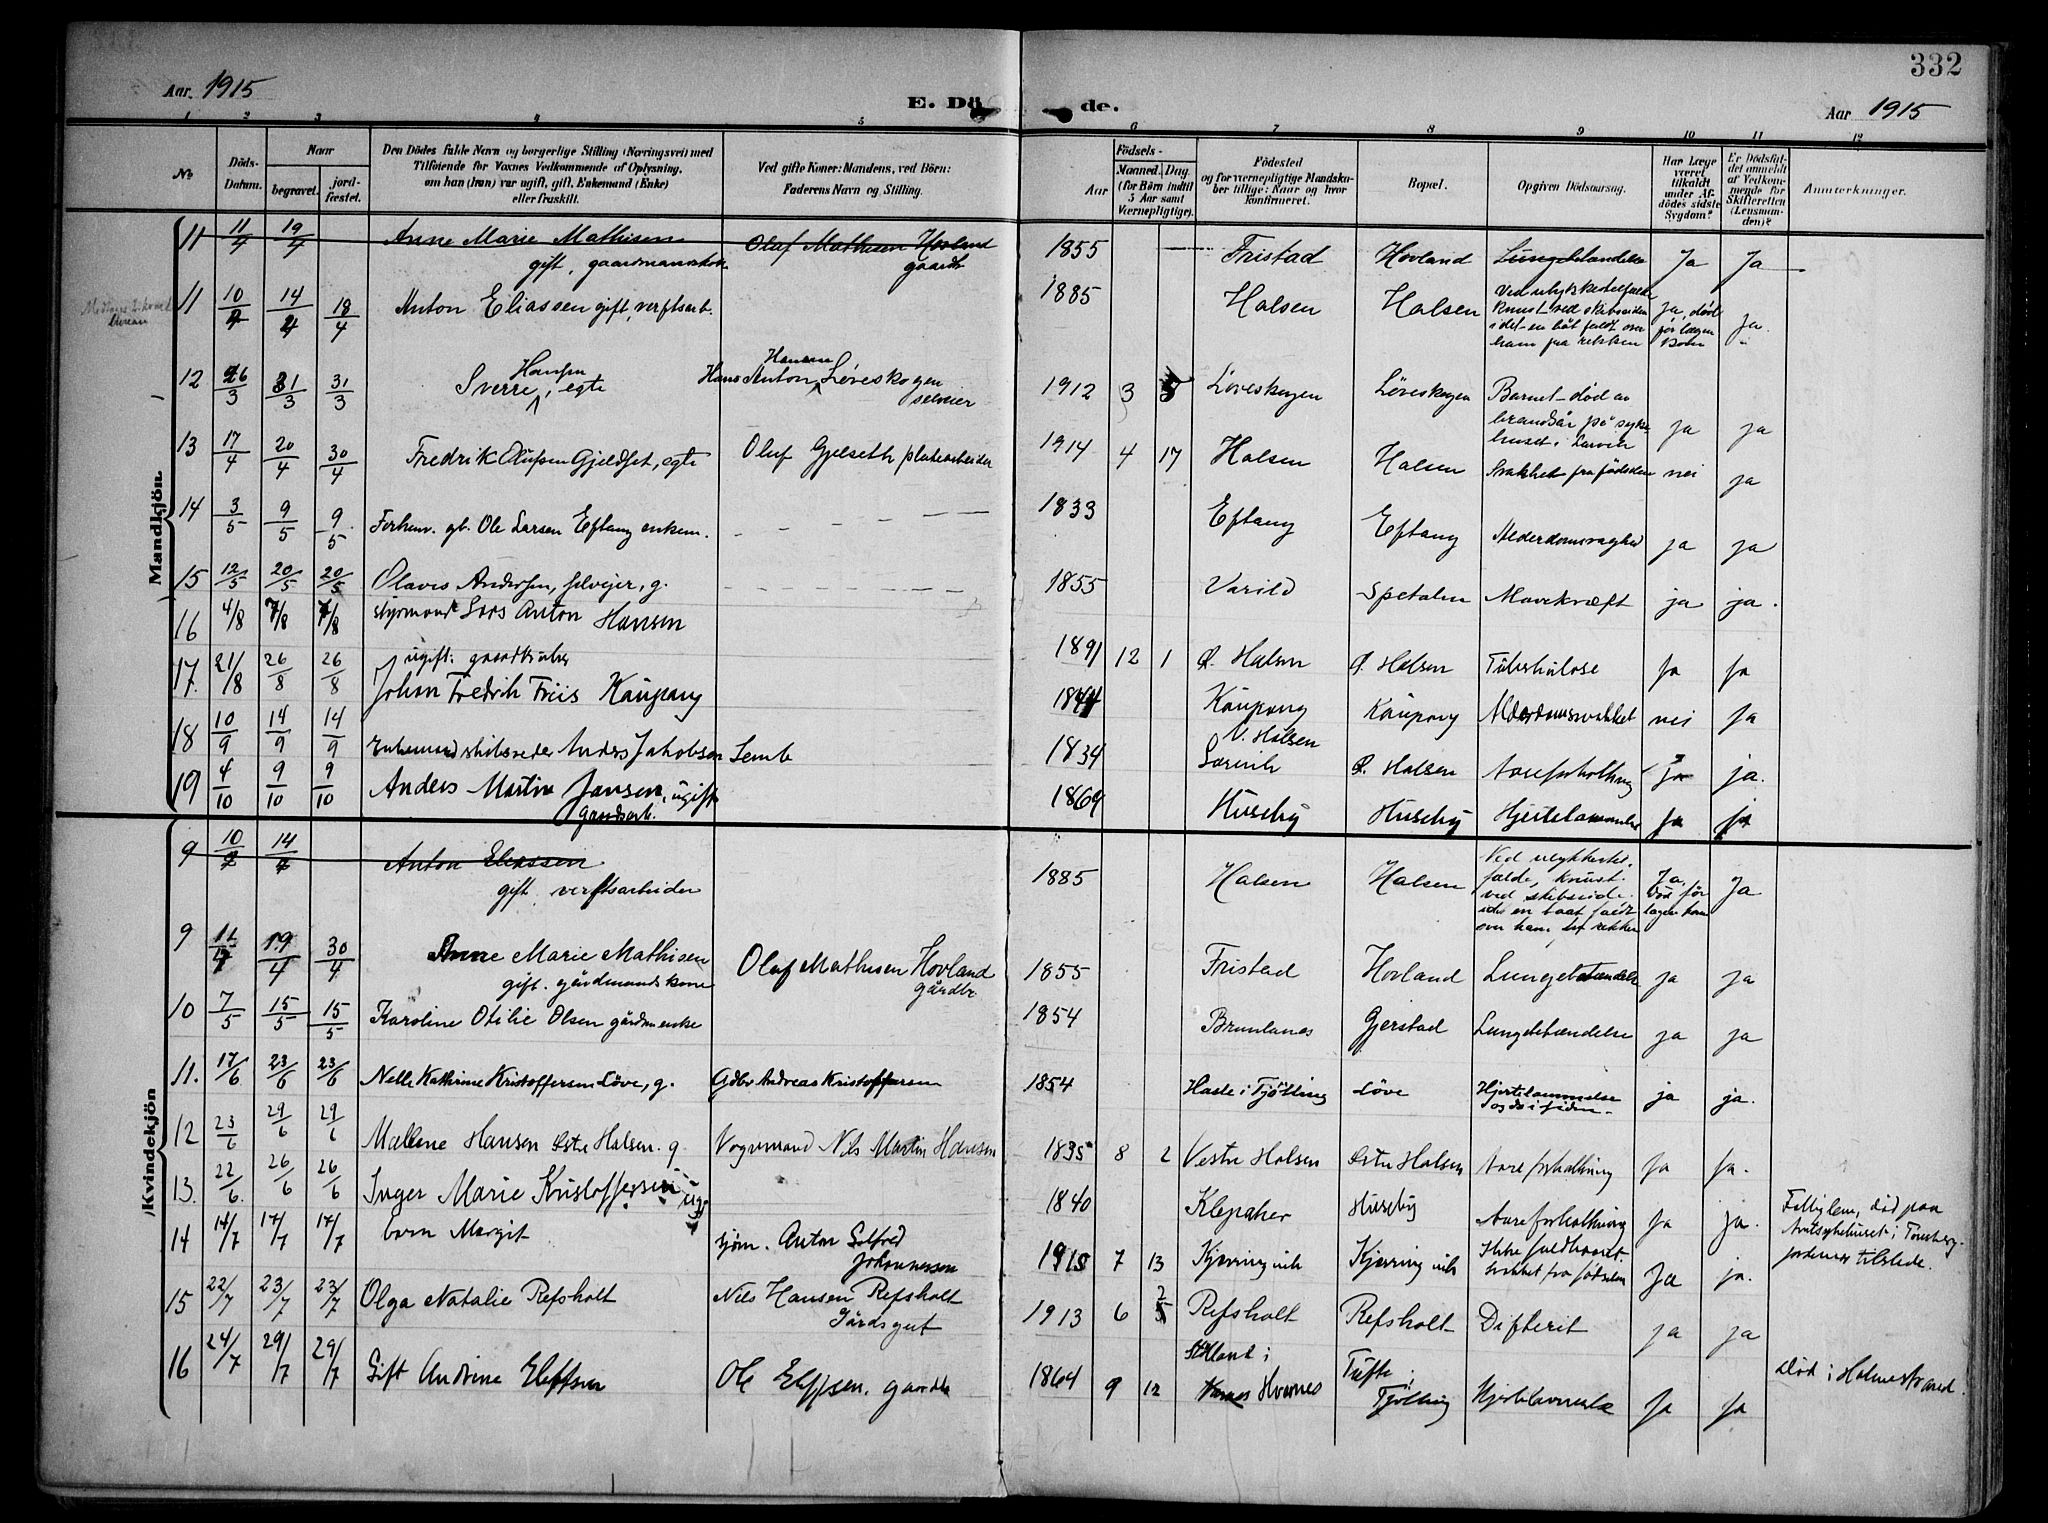 332
Aar. 1915
E. Döde.
Aar 1915
1 2 3 4 5 6 7 8 9 10 11 12
No.
Döds-Datum.
Naar
begravet.
jord-fæstet.
Den Dödes fulde Navn og borgerlige Stilling (Næringsvei) med
Tilföiende for Voxnes Vedkommende af Oplysning,
om han (hun) var ugift, gift, Enkemand (Enke)
eller fraskilt.
Ved gifte Koner: Mandens, ved Börn:
Faderens Navn og Stilling.
Födsels-
Aar
Maaned. Dag.
(for Börn indtil
5 Aar samt
Værnepligtige).
Födested
og for værnepligtige Mandska-
ber tillige: Naar og hvor
konfirmeret.
Bopæl.
Opgiven Dödsaarsag.
Har Læge
været
tilkaldt
under Af-
dödes sidste
Sygdom?
Er Dödsfal-
det anmeldt
af Vedkom-
mende for
Skifteretten
(Lensman-
den)?
Anmærkninger.
Mandkjön
11 11/4 19/4 Anne Marie Mathisen Olaf Mathisen Hovland 1855 Fristad Hovland Lungebetændelse Ja Ja
gift, gaardmandskone gaardb
11 10/2 14/2 18/4 Anton Eliassen gift, verftsarb. 1885 Halsen Halsen Ved ulykkestilfælde
knust ved skibssiden Ja, död
idet en båt faldt over för lægen Ja.
ham fra rækken kom
12 26/3 31/3 31/3 Sverre Hansen, egte Hans Anton Hansen Löveskogen 1912 3 Löveskogen Löveskogen Barnet död av
selveier
brandsår på syke-
huset i Larvik ja ja
13 17/4 20/4 30/4 Fredrik Olufsen Gjeldset, egte Oluf Gjelseth platearbeider 1914 4 17 Halsen Halsen Svakhet fra födselen nei ja
14 3/5 9/5 9/5 Forhenv. gb. Ole Larsen Eftang enkem. 1833 Eftang Eftang Alderdomssvaghed ja ja
15 12/5 20/5 20/5 Olaves Andersen, selvejer, g. 1855 Varild Spetalen Mavekræft ja ja.
16 4/8 7/8 7/8 styrmand Lars Anton Hansen 1891 12 1 Ø. Halsen Ø. Halsen Tuberkulose Ja Ja
17. 21/8 26/8 26/8 ugift: gaardbruker
Johan Fredrik Friis Kaupang 1844 Kaupang Kaupang Alderdomssvakhet nei Ja
18 10/9 14/9 14/9 Enkemand skibsreder Anders Jakobsen Semb 1834 V. Halsen
Larvik Ø. Halsen Aareforkalkning Ja ja.
19 4/10 9/10 9/10 Anders Martin Jansen, ugift 1864 Huseby Huseby Hjertelammelse Ja ja
gaardsarb.
Kvindekjön
9 10/2 14/2 Anton Eliassen 1885 Halsen Halsen Ved ulykkestil-
gift, verftsarbeider
fælde, knust Ja, Ja
ved skibsside död för
idet en baat faldt lægen kom
over ham fra rækken
9 11/4 19/4 30/4 Anne Marie Mathisen Olaf Mathisen Hovland 1855 Fristad Hovland Lungebetændelse ja ja
gift. gårdmandskone gårdbr
10 7/5 15/5 15/5 Karoline Otilie Olsen gårdm.enke 1854 Brunlanes Gjerstad Lungebetændelse ja ja
11. 17/6 23/6 23/6 Nelle Kathrine Kristoffersen Löve, g. Gdbr Andreas Kristoffersen 1854 Hasle i Tjölling Löve Hjertelammelse ja ja.
12 23/6 29/6 29/6 Mallene Hansen Østre Halsen. g. Vognmand Nils Martin Hansen 1835 8 2 Vestre Halsen Østre Halsen Aareforkalkning Ja Ja.
13. 22/6. 26/6 26/6 Inger Marie Kristoffersen ug. 1840 Klepaker Huseby Aareforkalkning Ja ja. Fattiglem, död paa
Amtsykehuset i Tönsberg
14 14/7 17/7 17/7 barn Margit sjöm. Anton Johannessen 1915 7 13 Kjerringvik Kjerringvik Ikke fuldbaaret. Ja ja. jordemor tilstede.
svakhet fra födselen
15 22/7 23/7 23/7 Olga Natalie Refsholt Nils Hansen Refsholt 1913 6 Refsholt Refsholt Difterit ja ja
Gårdsgut
16 24/7 29/7 29/7 Gift Andrine Ellefsen Ole Ellefsen, gaardb 1864 9 12 Hvarnes Tufte i
Tjölling Hjertelammelse Ja Ja Död i Holmestrand.